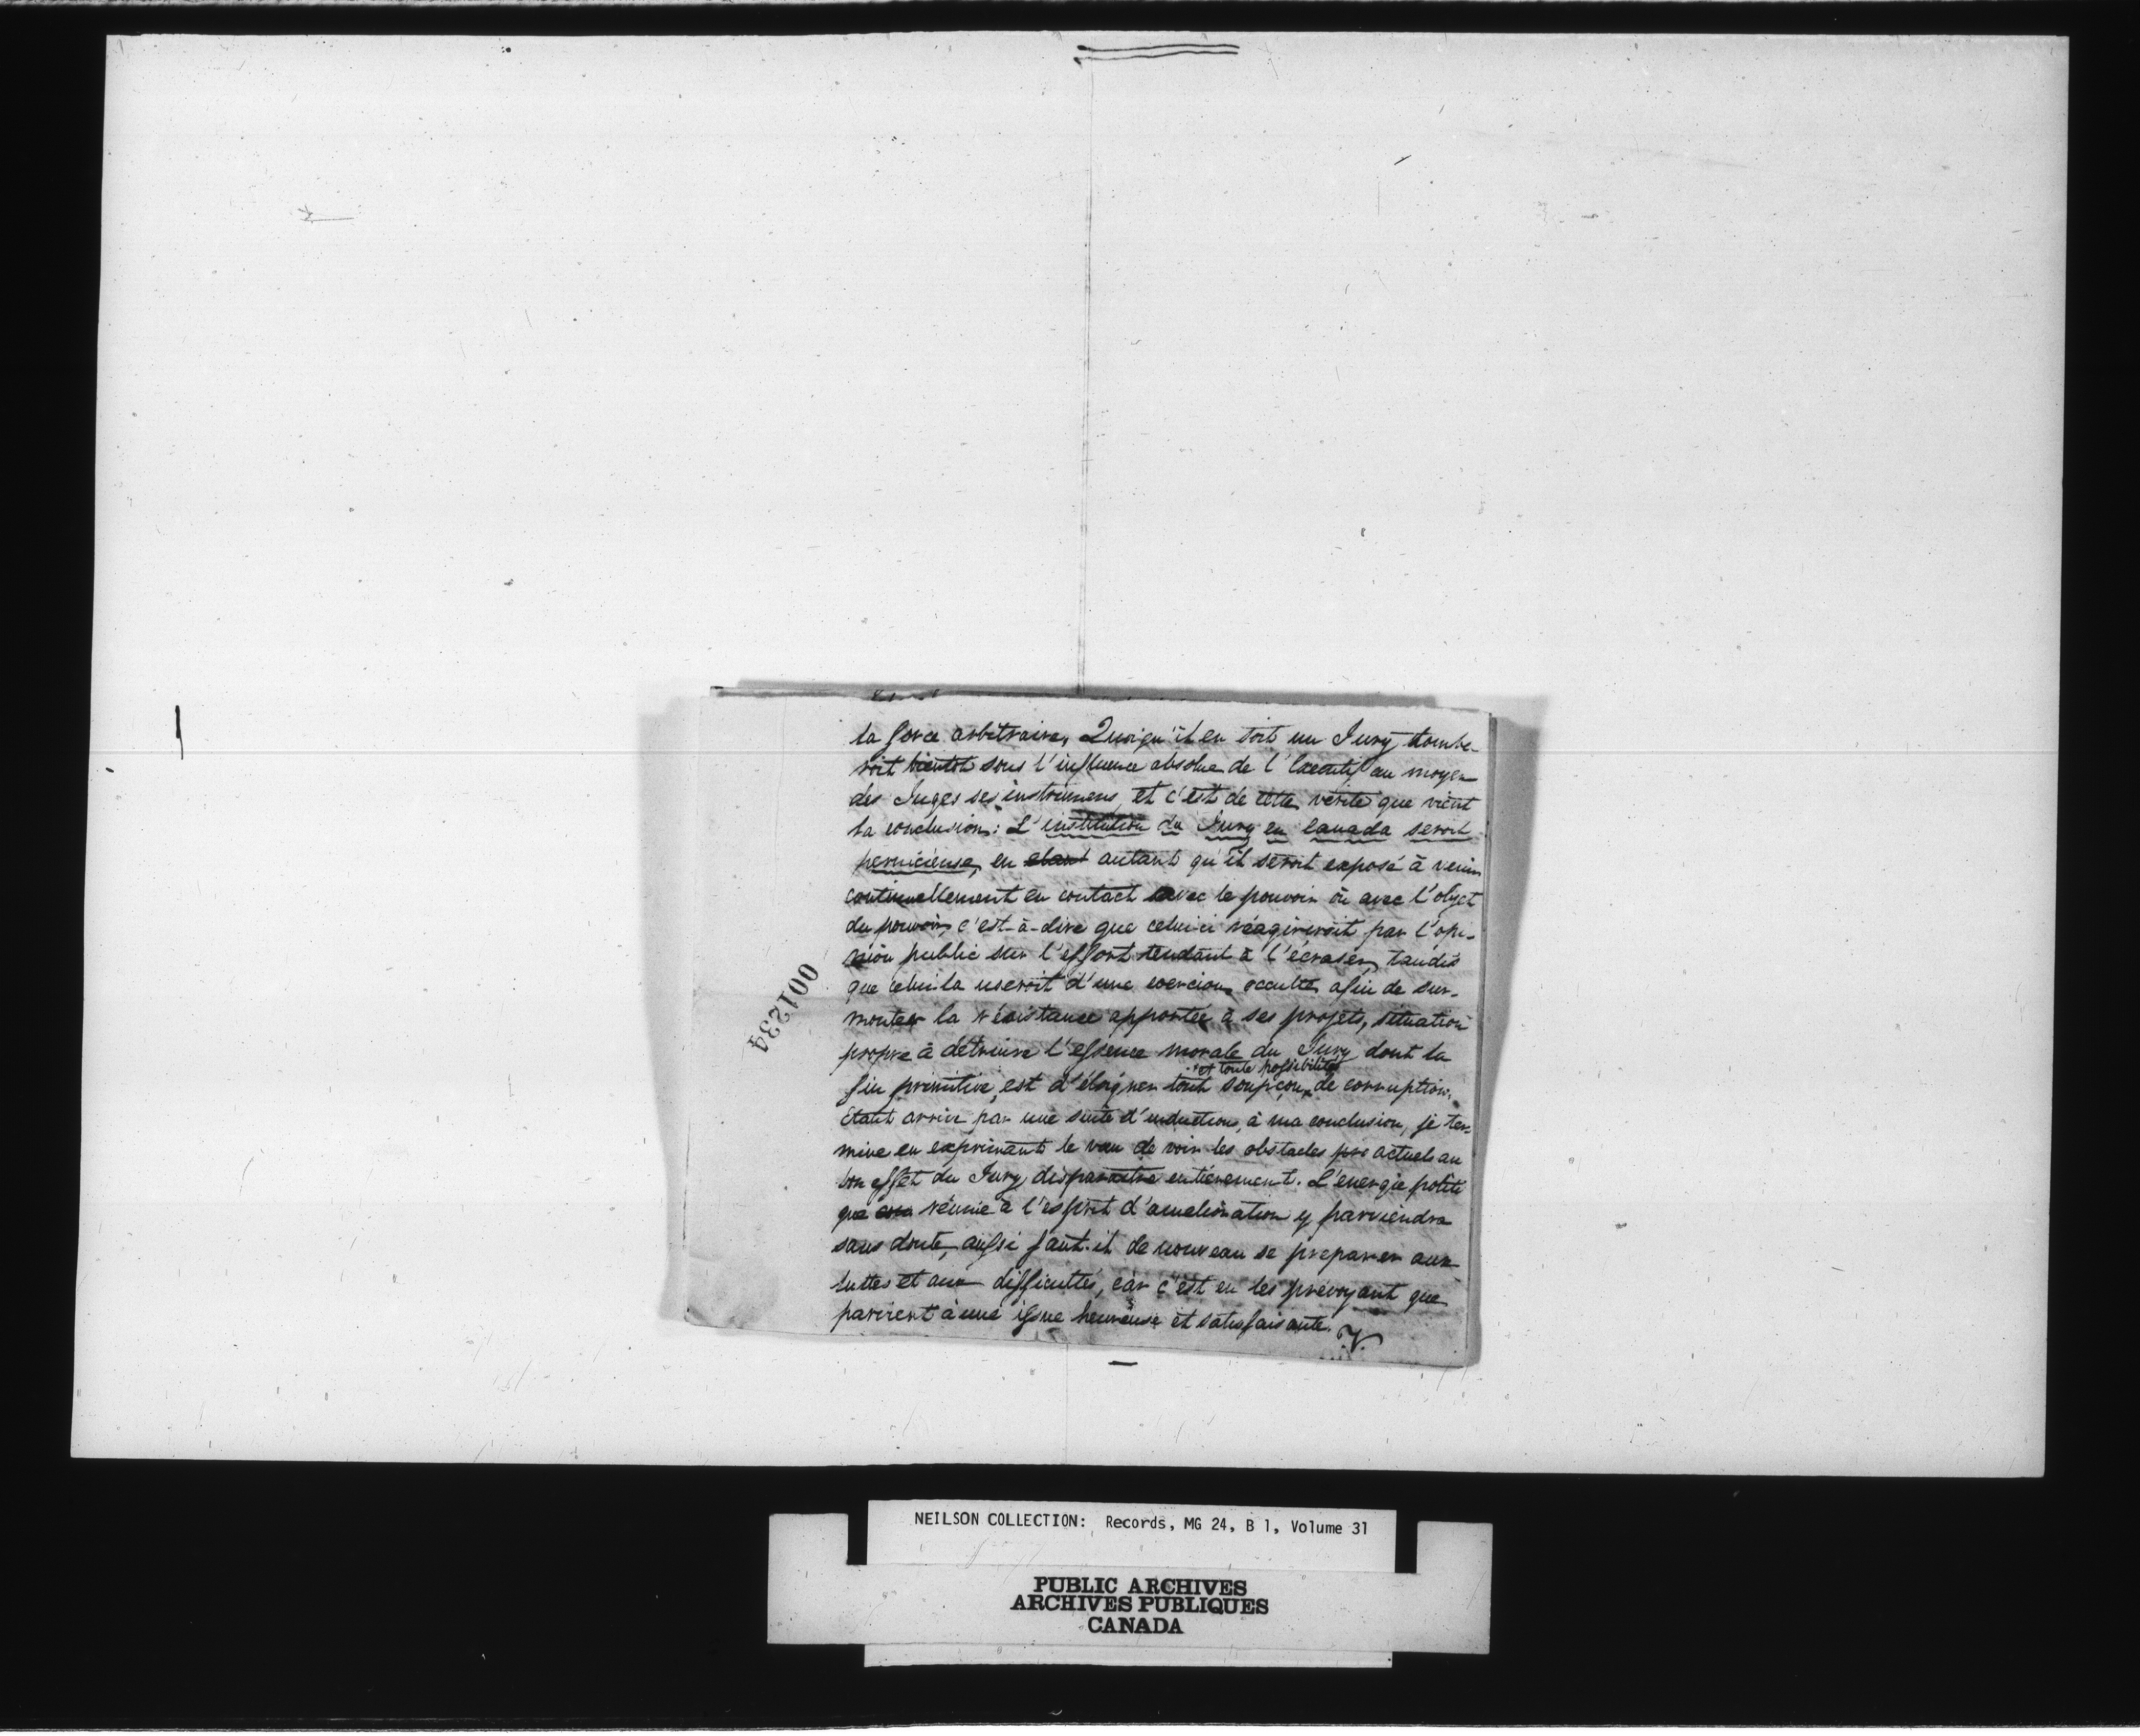 la force arbitraire, Quoiqu'il en soit un Jury tombe-
roit bientot sous l'influence absolue de l'Executif au moyen
des Juges ses instrumens, et c'est de cette vérité que vient
la conclusion: L'institution du Jury en Canada seroit
pernicieuse, en etant autant qu'il seroit exposé à venir
continuellement en contact avec le pouvoir ou avec l'objet
du pouvoir, c'est-à-dire que celui-ci réagireroit par l'opi-
nion public sur l'effort tendant à l'écraser, tandis
que celui la useroit d'une coercion occulte afin de sur-
monter la résistance apportée à ses projets, situation
propre à détruire l'essence morale du Jury dont la
et toute possibilité
fin primitive, est d'éloigner tout soupçon de corruption.
Etant arrivé par une suite d'induction, à ma conclusion, je ter-
mine en exprimant le vœu de voir les obstacles actuels au
bon effet du Jury disparaitre entièrement. L'energie politi
que réunie à l'esprit d'amelioration y parviendra
sans doute, aussi faut-il de nouveau se preparer aux
luttes et aux difficultés, car c'est en les prévoyant que
parvient à une issue heureuse et satisfaisante.
V.
001234
NEILSON COLLECTION: Records, MG 24, B 1, Volume 31
PUBLIC ARCHIVES
ARCHIVES PUBLIQUES
CANADA